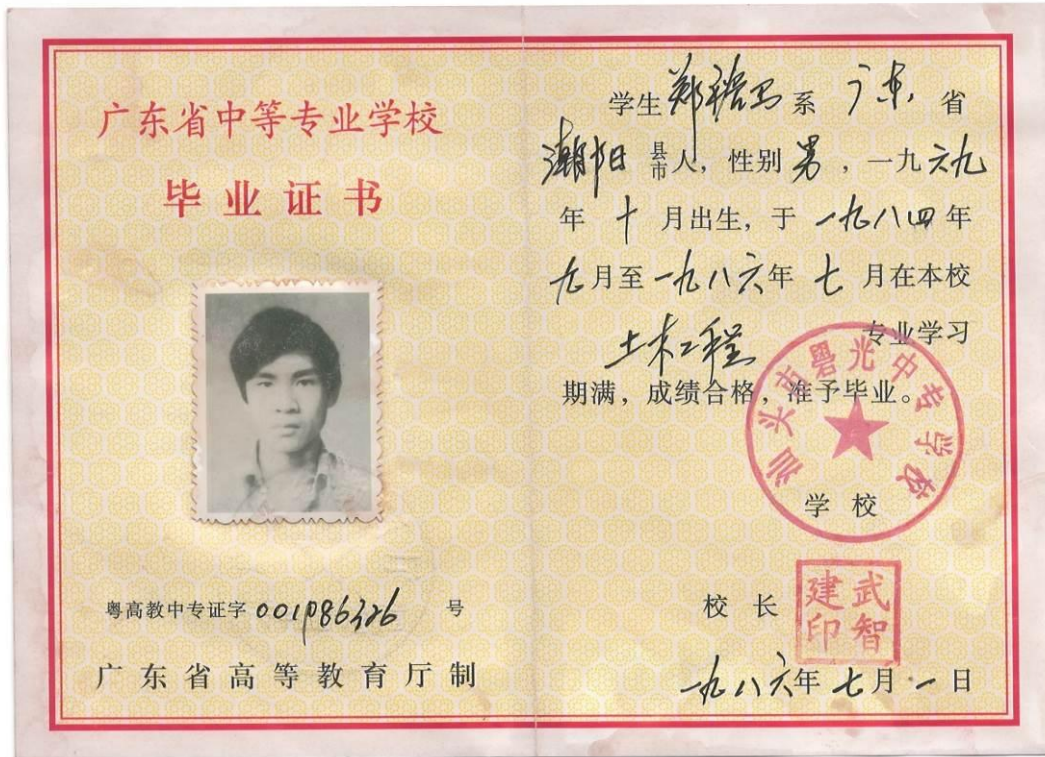 广东省中等专业学校
毕业证书
粤高教中专证字 001086326 号
广东省高等教育厅制
学生 郑 系 广东 省
潮阳 县市人，性别 男，一九六九
年 十 月出生，于 一九八四年
九月至一九八六年 七 月在本校
土木工程 专业学习
期满，成绩合格，准予毕业。
汕头市粤光中专学校
学校
校长
武智建印
一九八六年七月一日